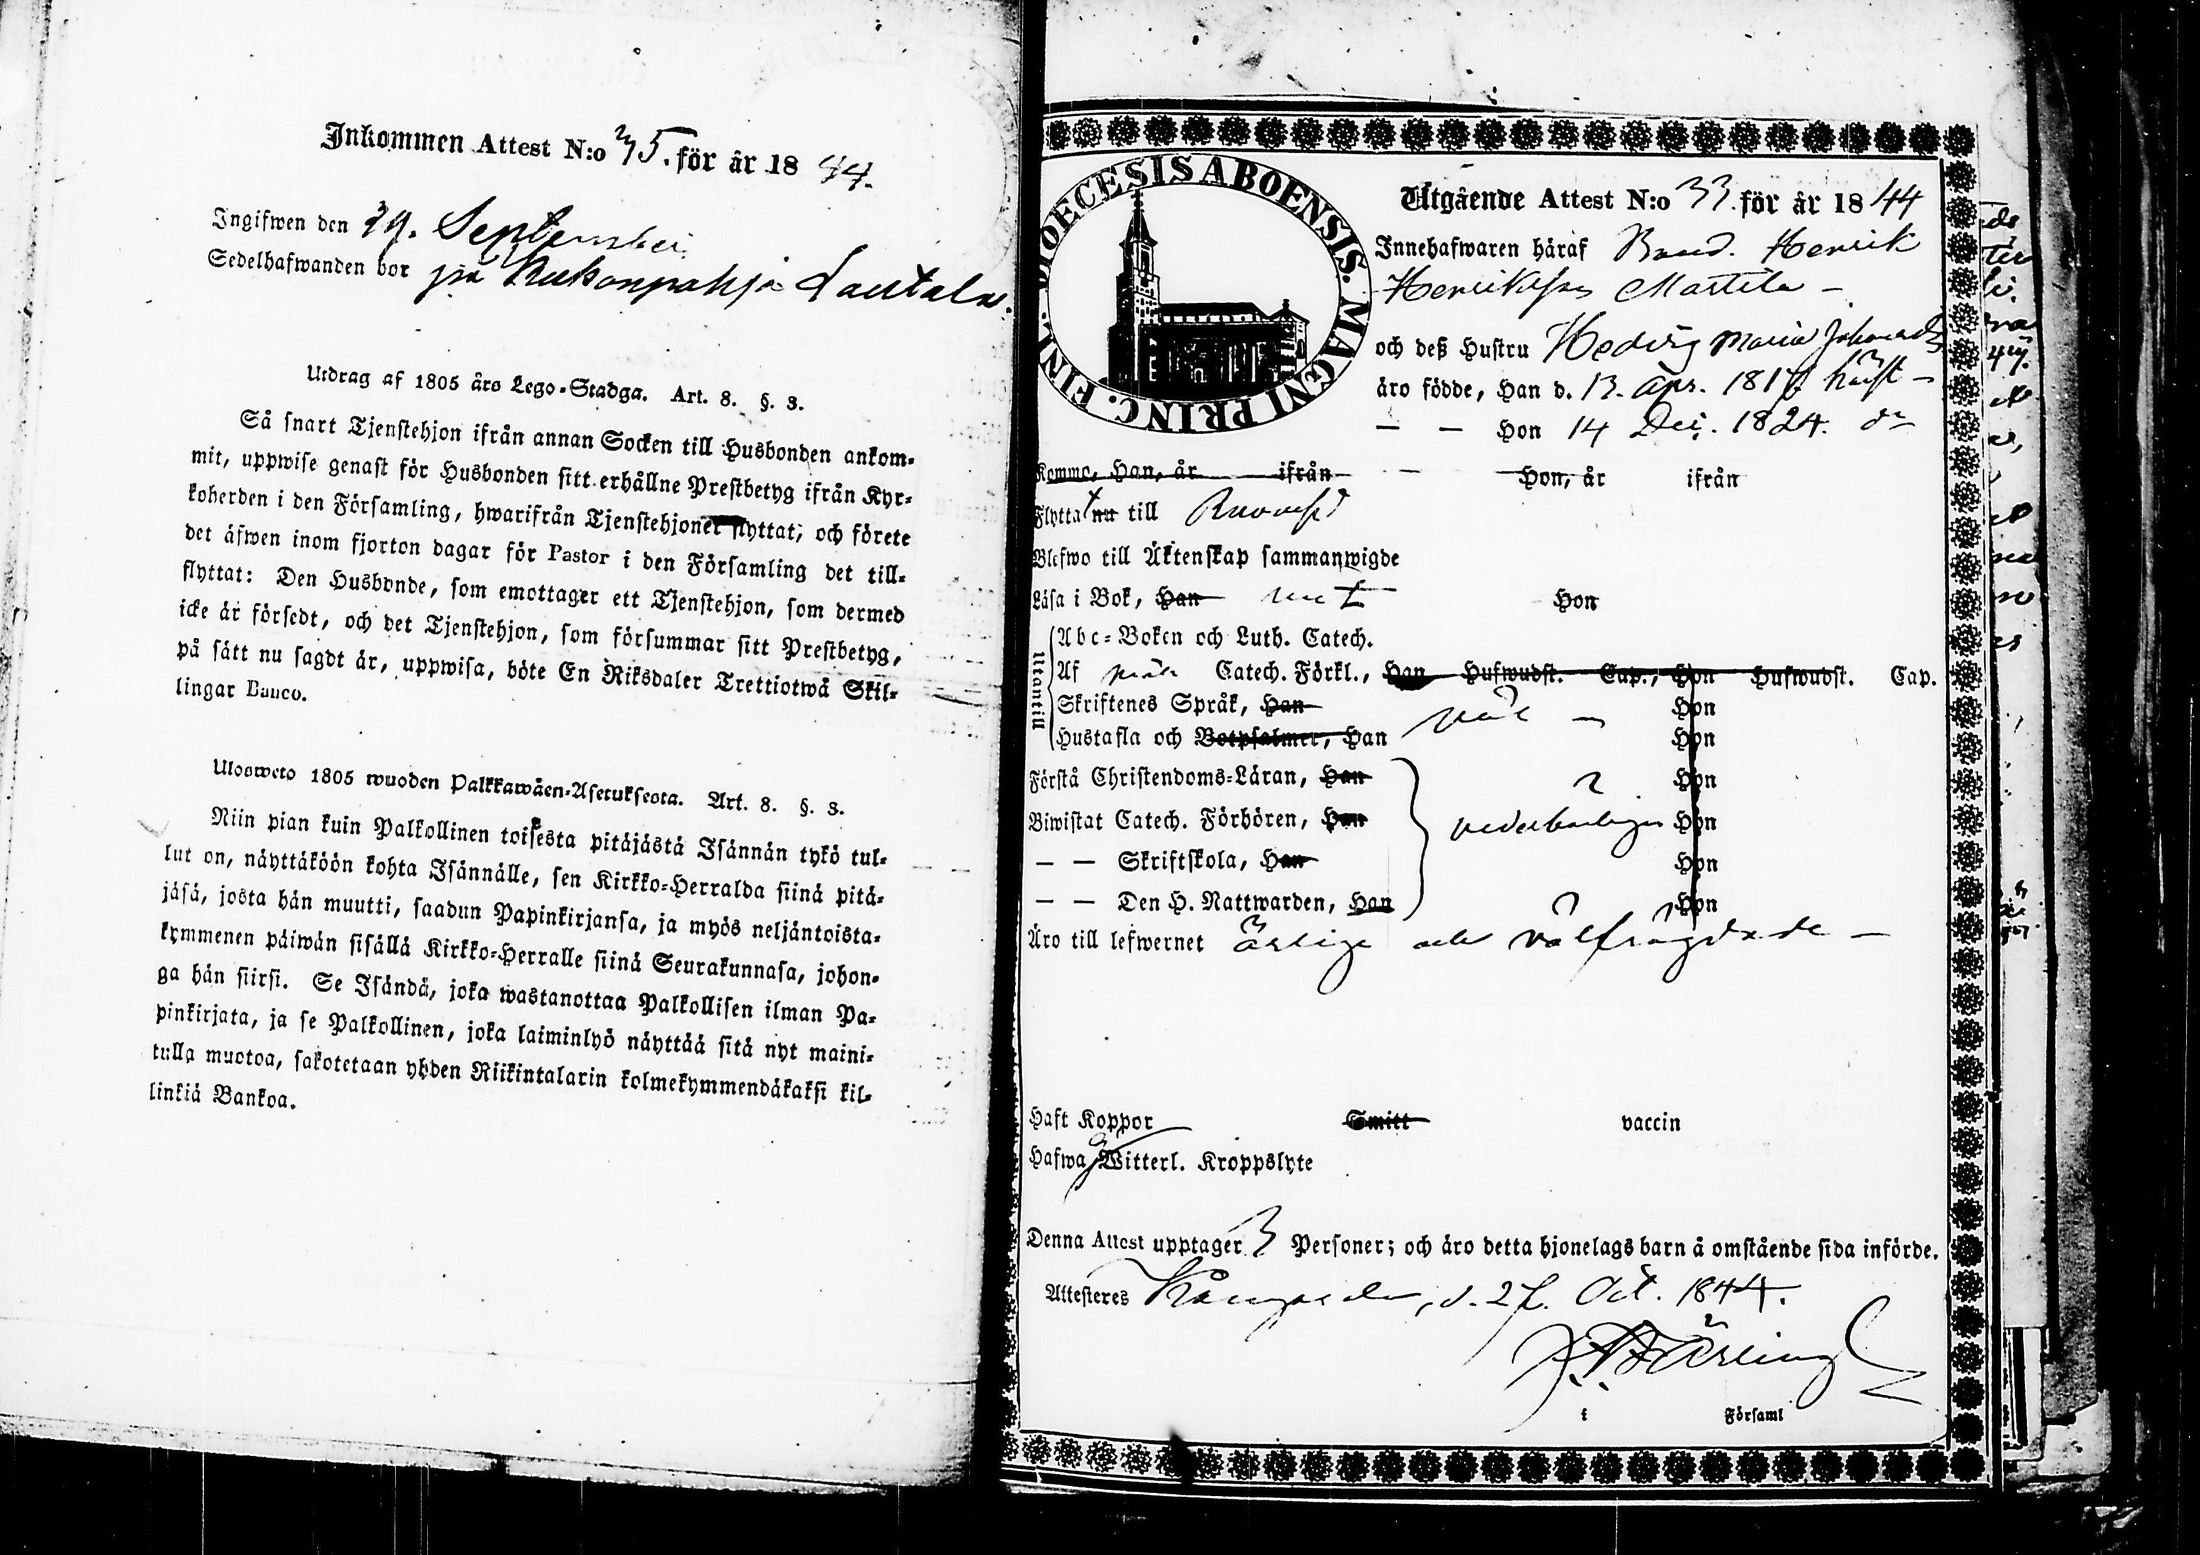 Inkommen Attest N:o 35. för år 18 44.
Ingifwen den 29. September
Sedelhafwanden bor på Lautala
Utdrag af 1805 års Lego-Stadga. Art. 8. §. 3.
Så snart Tjenstehjon ifrån annan Socken till Husbonden ankom-
mit, uppwise genast för Husbonden sitt erhållne Prestbetyg ifrån Kyr-
koherden i den Församling, hwarifrån Tjenstehjonet flyttat, och förete
det äfwen inom fjorton dagar för Pastor i den Församling det till-
flyttat: Den Husbonde, som emottager ett Tjenstehjon, som dermed
icke är försedt, och det Tjenstehjon, som försummar sitt Prestbetyg,
på sätt nu sagdt är, uppwisa, böte En Riksdaler Trettiotwå Skil-
lingar Banco.
Ulosweto 1805 wuoden Palkkawäen-Asetuksesta. Art. 8. §. 3.
Niin pian kuin Palkollinen toisesta pitäjästä Isännän tykö tul-
lut on, näyttäköön kohta Isännälle, sen Kirkko-Herralda siinä pitä-
jäsä, josta hän muutti, saadun Papinkirjansa, ja myös neljäntoista-
kymmenen päiwän sisällä Kirkko-Herralle siinä Seurakunnasa, johon-
ga hän siirsi. Se Isändä, joka wastanottaa Palkollisen ilman Pa-
pinkirjata, ja se Palkollinen, joka laiminlyö näyttää sitä nyt maini-
tulla muotoa, sakotetaan yhden Riikintalarin kolmekymmendäkaksi kil-
linkiä Bankoa.
DIOECESIS ABOENSIS. MAGNI PRINC. FINL.
Utgående Attest N:o 33. för år 18 44
Innehafwaren häraf Bond. Henrik
Henriksson Martila –
och deß Hustru Hedvig Maria Johansdr
äro födde, Han d. 13. Apr. 181
– – Hon 14 Dec. 1824. do
Komme, Han, år ifrån Hon, år ifrån
Flytta nu till
Blefwo till Äktenskap sammanwigde
Läsa i Bok, Han Hon
Utantill
Abc-Boken och Luth. Catech.
Af Catech. Förkl., Han Hufwudst. Cap., Hon Hufwudst. Cap.
Skriftenes Språk, Han Hon
Hustafla och Botpsalmer, Han Hon
Förstå Christendoms-Läran, Han Hon
Biwistat Catech. Förhören, Han vederbörligen Hon
– – Skriftskola, Han Hon
– – Den H. Nattwarden, Han Hon
Äro till lefwernet ärlige och välfrägdade –
Haft Koppor Smitt vaccin
Hafwa Witterl. Kroppslyte
Denna Attest upptager 3 Personer; och äro detta hjonelags barn å omstående sida införde.
Attesteres d. 27. Oct. 1844.
f Församl